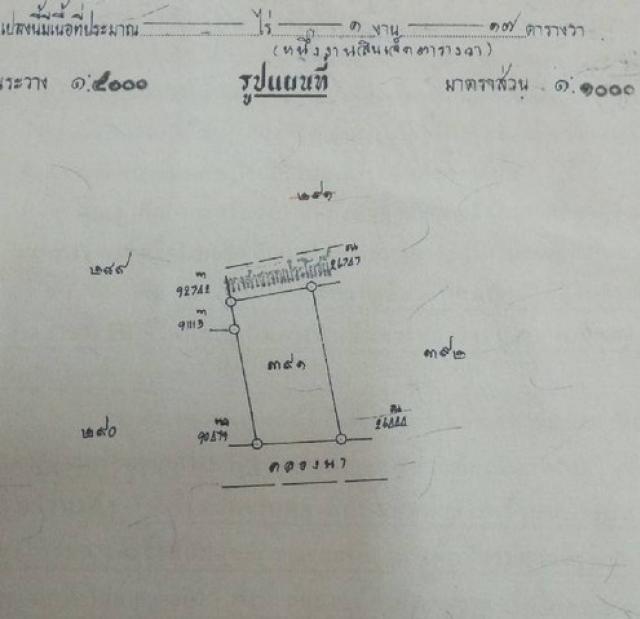 แปลงนี้มีเนื้อที่ประมาณ ไร่ ๑ งาน ๑๗ ตารางวา
(หนึ่งงานสิบเจ็ดตารางวา)
ระวาง ๑:๕๐๐๐ รูปแผนที่ มาตราส่วน ๑:๑๐๐๐
๒๙๑
๒๘๙
ทางสาธารณประโยชน์
๓๙๑
๓๙๒
๒๙๐
คลองนา